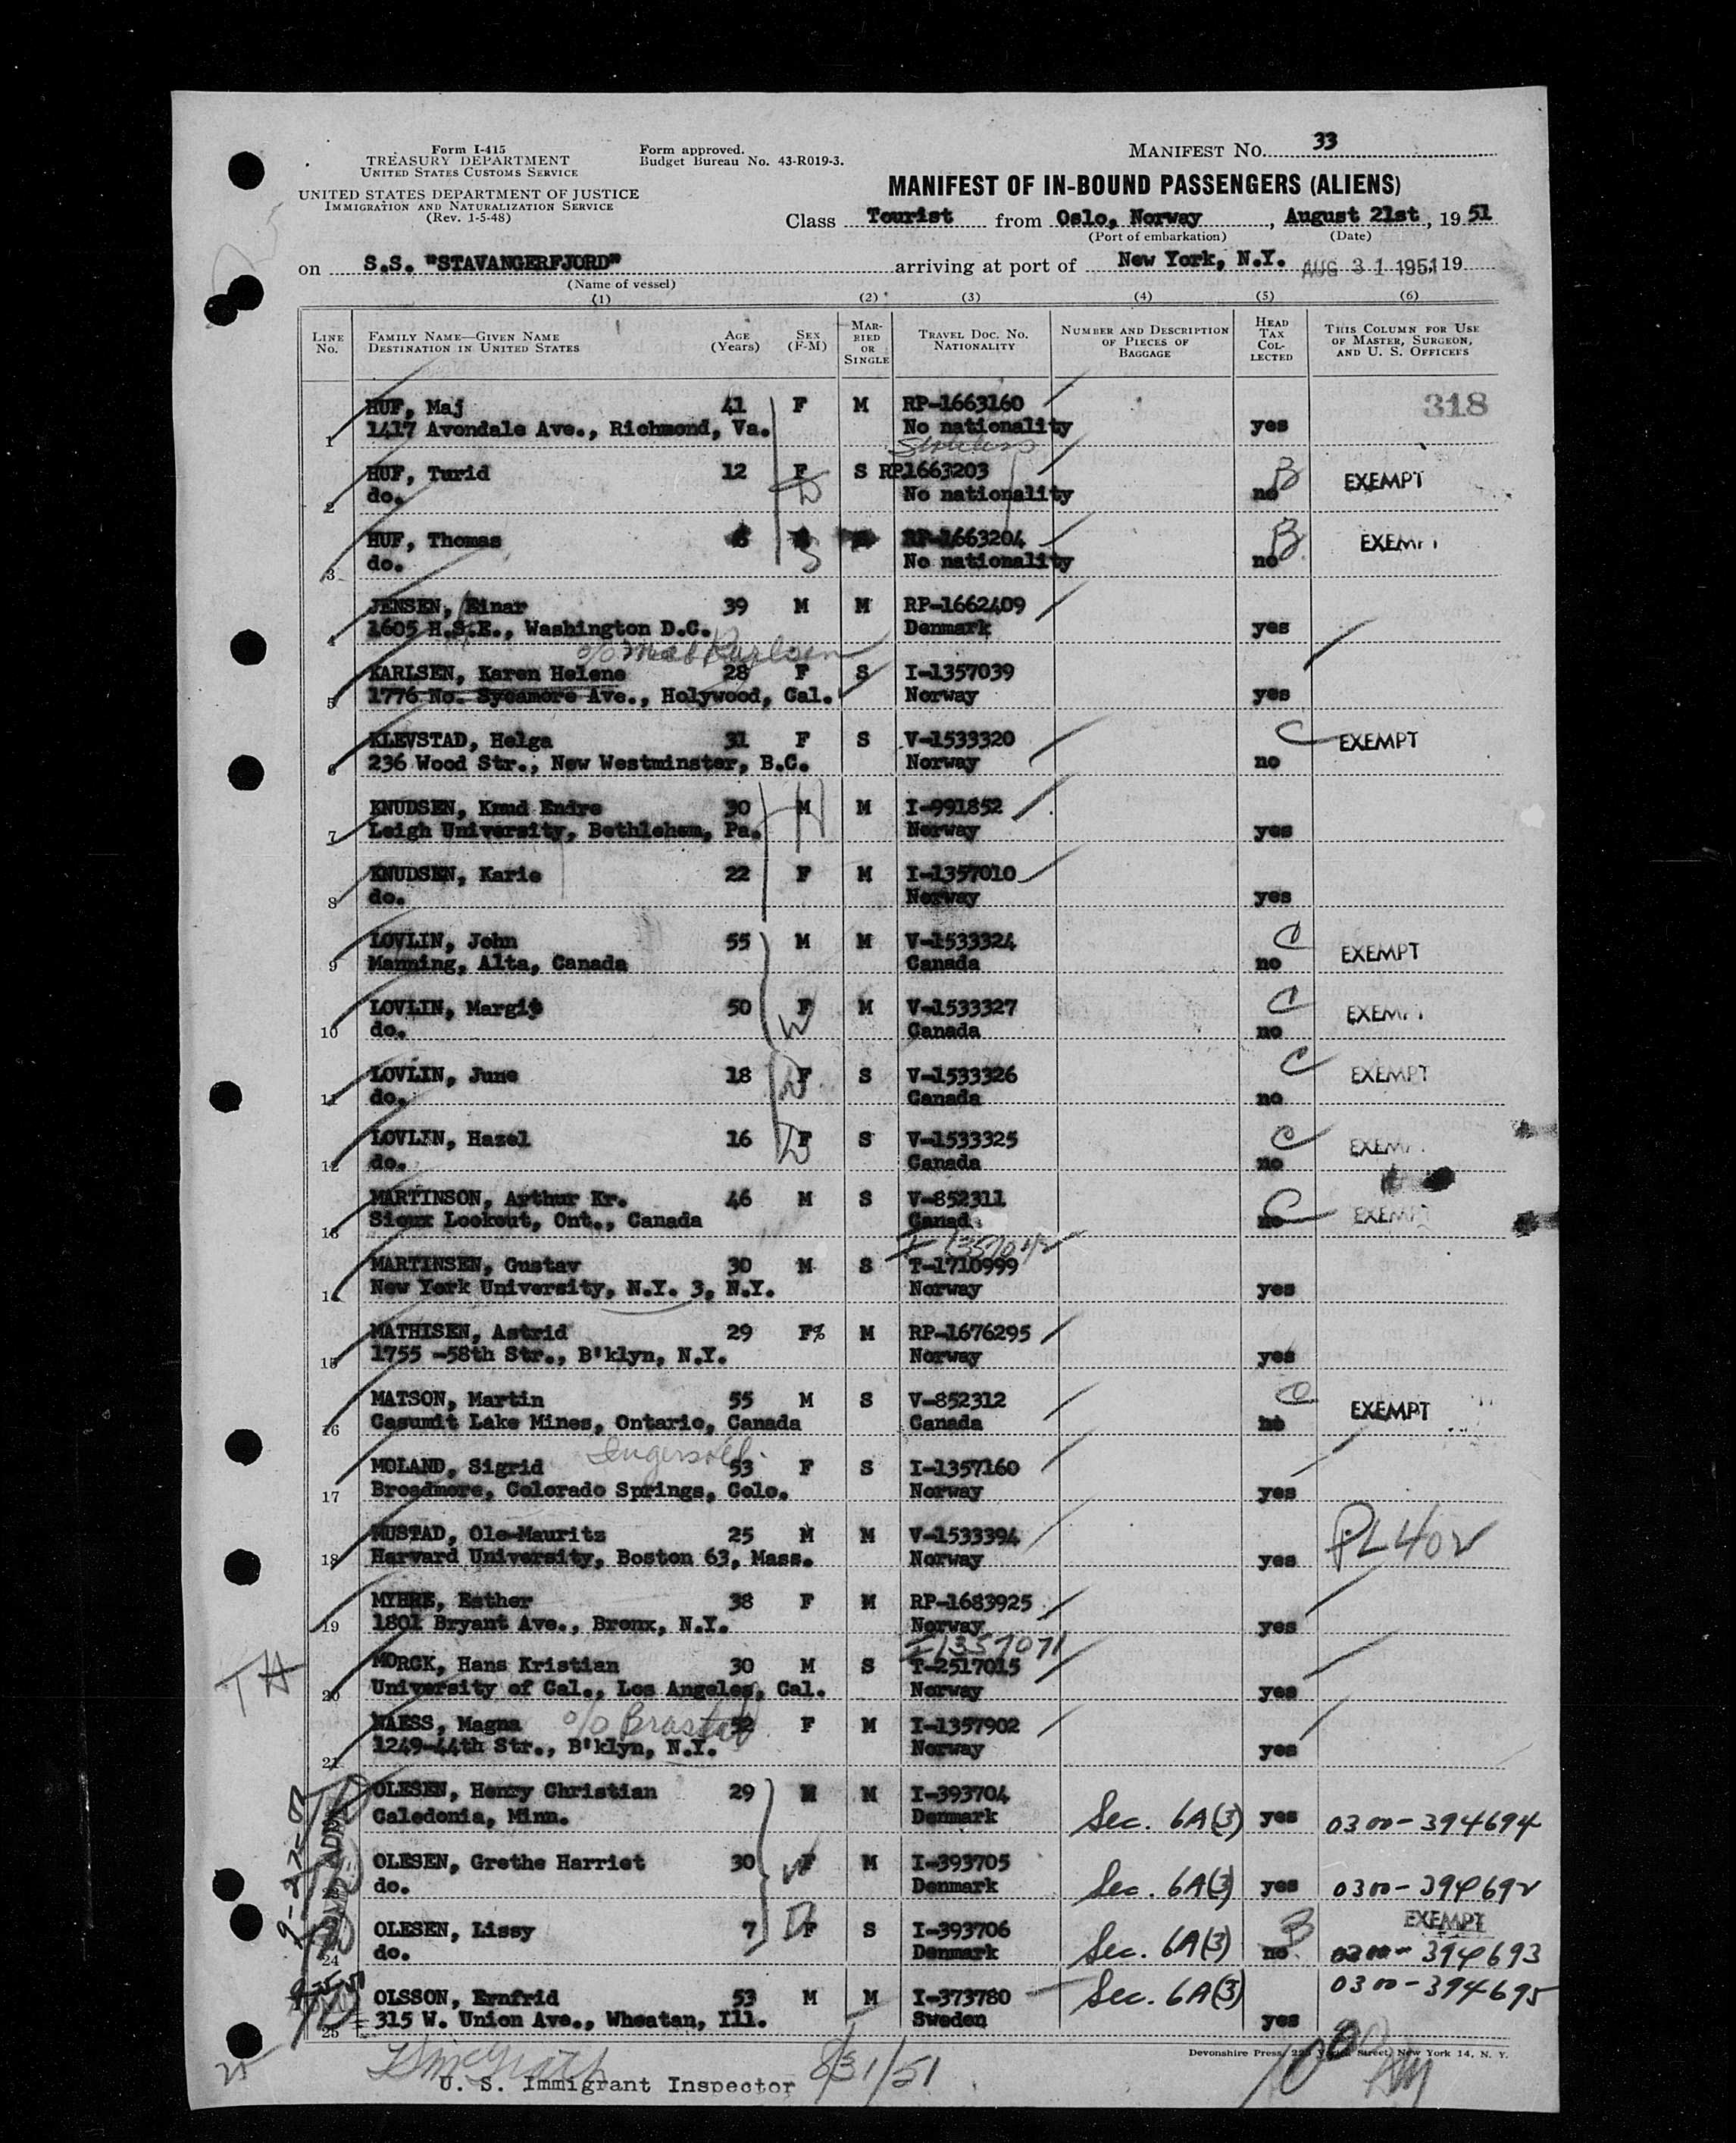 Form I-415
TREASURY DEPARTMENT
UNITED STATES CUSTOMS SERVICE
UNITED STATES DEPARTMENT OF JUSTICE
IMMIGRATION AND NATURALIZATION SERVICE
(Rev. 1-5-48)
Form approved.
Budget Bureau No. 43-R019-3.
MANIFEST NO. 33
MANIFEST OF IN-BOUND PASSENGERS (ALIENS)
Class Tourist from Oslo, Norway, August 21st, 1951
(Port of embarkation) (Date)
on S.S. "STAVANGERFJORD" arriving at port of New York, N.Y. AUG 31 1951 19
(Name of vessel)
(1) (2) (3) (4) (5) (6)
LINE No. FAMILY NAME—GIVEN NAME DESTINATION IN UNITED STATES AGE (Years) SEX (F-M) MARRIED OR SINGLE TRAVEL DOC. NO. NATIONALITY NUMBER AND DESCRIPTION OF PIECES OF BAGGAGE HEAD TAX COLLECTED THIS COLUMN FOR USE OF MASTER, SURGEON, AND U. S. OFFICERS
HUF, Maj 41 F M RP-1663160 318
1 1417 Avondale Ave., Richmond, Va. No nationality yes
Stateless
HUF, Turid 12 F S RP1663203 B EXEMPT
2 do. D No nationality no
HUF, Thomas RP-1663204 B EXEMPT
3 do. S No nationality no
JENSEN, Einar 39 M M RP-1662409
4 1605 H.S.E., Washington D.C. Denmark yes
KARLSEN, Karen Helene 28 F S I-1357039
5 1776 No. Sycamore Ave., Holywood, Cal. Norway yes
KLEVSTAD, Helga 31 F S V-1533320 C EXEMPT
6 236 Wood Str., New Westminster, B.C. Norway no
KNUDSEN, Knud Endre 30 M M I-991852
7 Leigh University, Bethlehem, Pa. H Norway yes
KNUDSEN, Karie 22 F M I-1357010
8 do. Norway yes
LOVLIN, John 55 M M V-1533324 C EXEMPT
9 Manning, Alta, Canada Canada no
LOVLIN, Margit 50 F M V-1533327 C EXEMPT
10 do. W Canada no
LOVLIN, June 18 F S V-1533326 C EXEMPT
11 do. D Canada no
LOVLIN, Hazel 16 F S V-1533325 C EXEMPT
12 do. D Canada no
MARTINSON, Arthur Kr. 46 M S V-852311 C EXEMPT
13 Sioux Lookout, Ont., Canada Canada no
I 1357042
MARTINSEN, Gustav 30 M S T-1710999
14 New York University, N.Y. 3, N.Y. Norway yes
MATHISEN, Astrid 29 F% M RP-1676295
15 1755 -58th Str., B'klyn, N.Y. Norway yes
MATSON, Martin 55 M S V-852312 C EXEMPT
16 Casumit Lake Mines, Ontario, Canada Canada no
MOLAND, Sigrid 53 F S I-1357160
17 Broadmore, Colorado Springs, Colo. Norway yes
MUSTAD, Ole-Mauritz 25 M M V-1533394 PL 402
18 Harvard University, Boston 63, Mass. Norway yes
MYHRE, Esther 38 F M RP-1683925
19 1801 Bryant Ave., Bronx, N.Y. Norway yes
I-1357071
MORCK, Hans Kristian 30 M S T-2517015
20 University of Cal., Los Angeles, Cal. Norway yes
NAESS, Magna 52 F M I-1357902
21 1249-44th Str., B'klyn, N.Y. Norway yes
OLESEN, Henry Christian 29 M M I-393704
Caledonia, Minn. Denmark Sec. 6A(3) yes 0300-394694
OLESEN, Grethe Harriet 30 F M I-393705
do. W Denmark Sec. 6A(3) yes 0300-394692
OLESEN, Lissy 7 F S I-393706 B EXEMPT
24 do. D Denmark Sec. 6A(3) no 0300-394693
OLSSON, Ernfrid 53 M M I-373780 Sec. 6A(3) 0300-394695
25 315 W. Union Ave., Wheatan, Ill. Sweden yes
Devonshire Press, 225 Varick Street, New York 14, N. Y.
25
8/31/51
U. S. Immigrant Inspector